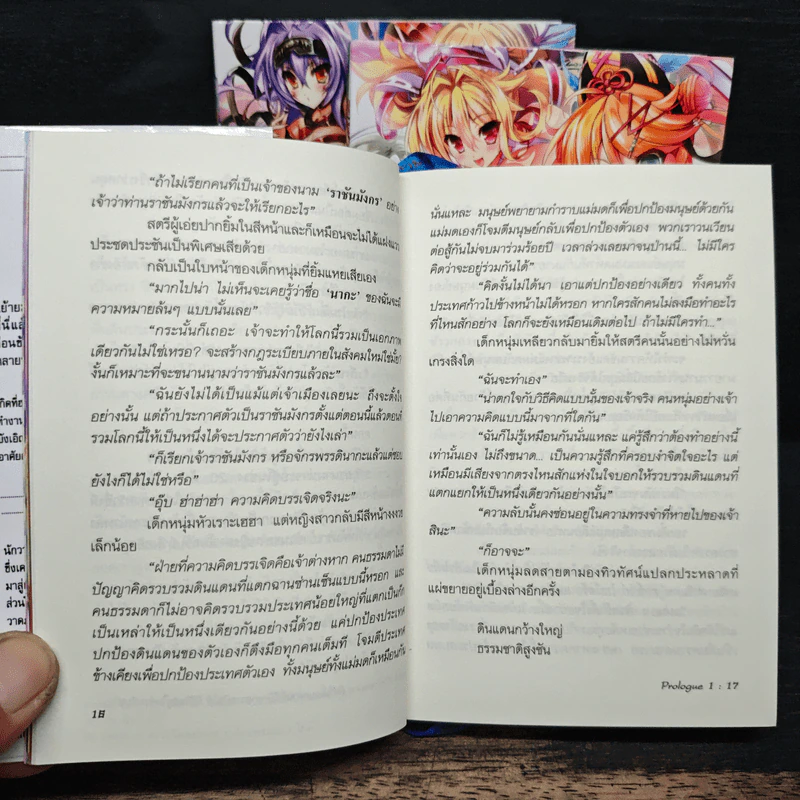 “ถ้าไม่เรียกคนที่เป็นเจ้าของนาม ‘ราชันมังกร’ อย่าง
เจ้าว่าท่านราชันมังกรแล้วจะให้เรียกอะไร”
สตรีผู้เอ่ยปากยิ้มในสีหน้าและก็เหมือนจะไม่ได้แฝงแวว
ประชดประชันเป็นพิเศษเสียด้วย
กลับเป็นใบหน้าของเด็กหนุ่มที่ยิ้มแหยเสียเอง
“มากไปน่า ไม่เห็นจะเคยรู้ว่าชื่อ ‘นากะ’ ของฉันจะมี
ความหมายล้นๆ แบบนั้นเลย”
“กระนั้นก็เถอะ เจ้าจะทำให้โลกนี้รวมเป็นเอกภาพ
เดียวกันไม่ใช่เหรอ? จะสร้างกฎระเบียบภายในสังคมใหม่ใช่มั้ย?
งั้นก็เหมาะที่จะขนานนามว่าราชันมังกรแล้วละ”
“ฉันยังไม่ได้เป็นแม้แต่เจ้าเมืองเลยนะ ถึงจะตั้งใจ
อย่างนั้น แต่ถ้าประกาศตัวเป็นราชันมังกรตั้งแต่ตอนนี้แล้วตอนที่
รวมโลกนี้ให้เป็นหนึ่งได้จะประกาศตัวว่ายังไงเล่า”
“ก็เรียกเจ้าราชันมังกร หรือจักรพรรดินากะแล้วแต่ชอบ
ยังไงก็ได้ไม่ใช่หรือ”
“อุ๊บ ฮ่าฮ่าฮ่า ความคิดบรรเจิดจริงนะ”
เด็กหนุ่มหัวเราะเฮฮา แต่หญิงสาวกลับมีสีหน้างงงวย
เล็กน้อย
“ฝ่ายที่ความคิดบรรเจิดคือเจ้าต่างหาก คนธรรมดาไม่มี
ปัญญาคิดรวบรวมดินแดนที่แตกฉานซ่านเซ็นแบบนี้หรอก และ
คนธรรมดาก็ไม่อาจคิดรวบรวมประเทศน้อยใหญ่ที่แตกเป็นก๊ก
เป็นเหล่าให้เป็นหนึ่งเดียวกันอย่างนี้ด้วย แค่ปกป้องประเทศ
ปกป้องดินแดนของตัวเองก็ตึงมือทุกคนเต็มที โจมตีประเทศ
ข้างเคียงเพื่อปกป้องประเทศตัวเอง ทั้งมนุษย์ทั้งแม่มดก็เหมือนกัน
16
นั่นแหละ มนุษย์พยายามกำราบแม่มดก็เพื่อปกป้องมนุษย์ด้วยกัน
แม่มดเองก็โจมตีมนุษย์กลับเพื่อปกป้องตัวเอง พวกเราวนเวียน
ต่อสู้กันไม่จบมาร่วมร้อยปี เวลาล่วงเลยมาจนป่านนี้... ไม่มีใคร
คิดว่าจะอยู่ร่วมกันได้”
“คิดงั้นไม่ได้นา เอาแต่ปกป้องอย่างเดียว ทั้งคนทั้ง
ประเทศก้าวไปข้างหน้าไม่ได้หรอก หากใครสักคนไม่ลงมือทำอะไร
ที่ไหนสักอย่าง โลกก็จะยังเหมือนเดิมต่อไป ถ้าไม่มีใครทำ...”
เด็กหนุ่มเหลียวกลับมายิ้มให้สตรีคนนั้นอย่างไม่หวั่น
เกรงสิ่งใด
“ฉันจะทำเอง”
“น่าตกใจกับวิธีคิดแบบนั้นของเจ้าจริง คนหนุ่มอย่างเจ้า
ไปเอาความคิดแบบนี้มาจากที่ใดกัน”
“ฉันก็ไม่รู้เหมือนกันนั่นแหละ แค่รู้สึกว่าต้องทำอย่างนี้
เท่านั้นเอง ไม่ถึงขนาด... เป็นความรู้สึกที่ครอบงำจิตใจอะไร แต่
เหมือนมีเสียงจากตรงไหนสักแห่งในใจบอกให้รวบรวมดินแดนที่
แตกแยกให้เป็นหนึ่งเดียวกันอย่างนั้น”
“ความลับนั้นคงซ่อนอยู่ในความทรงจำที่หายไปของเจ้า
สินะ”
“ก็อาจจะ”
เด็กหนุ่มลดสายตามองทิวทัศน์แปลกประหลาดที่
แผ่ขยายอยู่เบื้องล่างอีกครั้ง
ดินแดนกว้างใหญ่
ธรรมชาติสูงชัน
Prologue 1 : 17